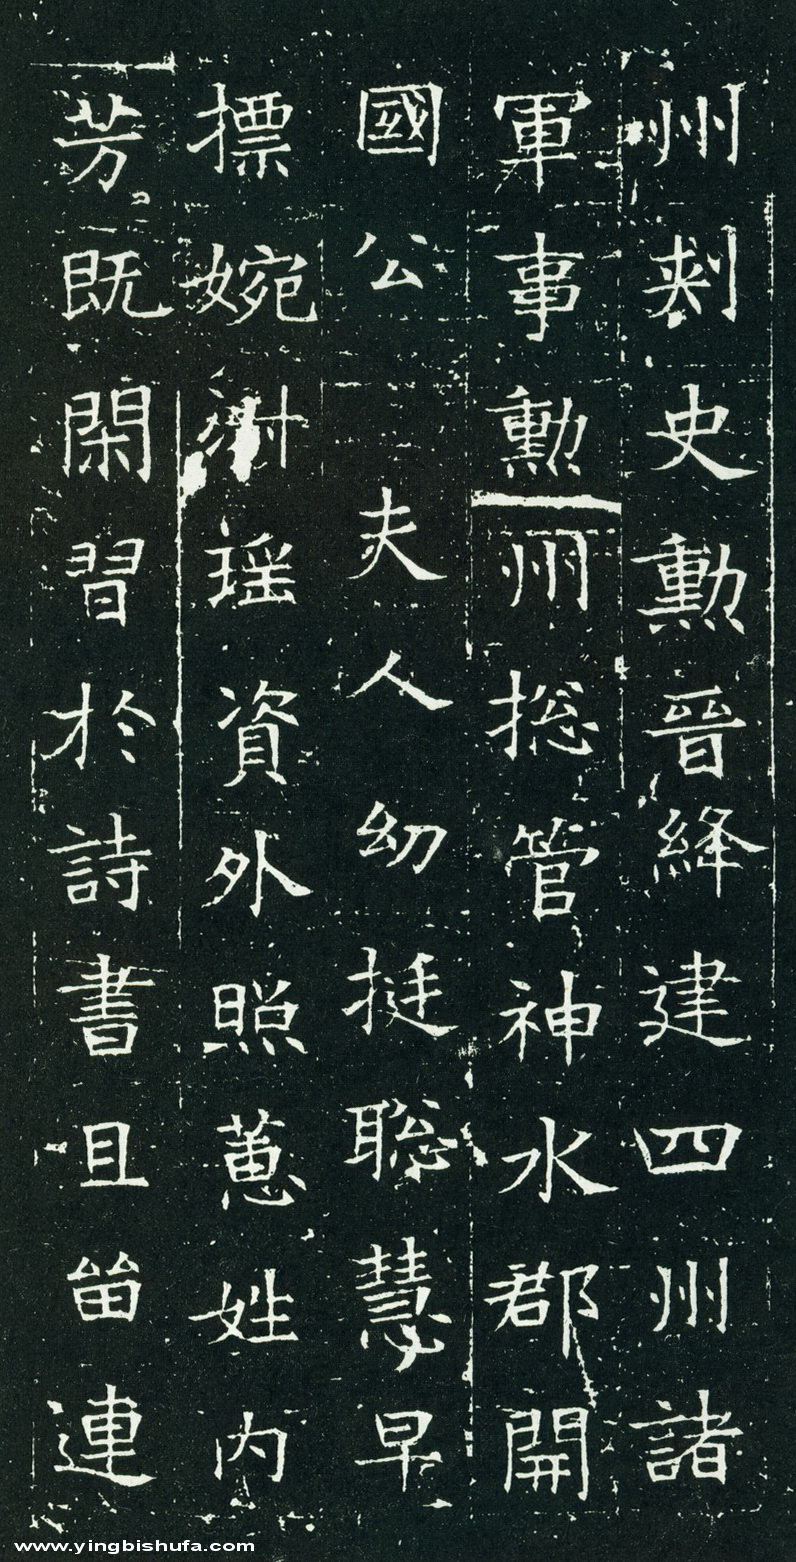 州刺史勲晉絳建四州諸
軍事勲州揔管神水郡開
國公 夫人幼挺聡慧早
摽婉瑶資外照蕙姓内
芳既閑習於詩書且留連
www.yingbishufa.com